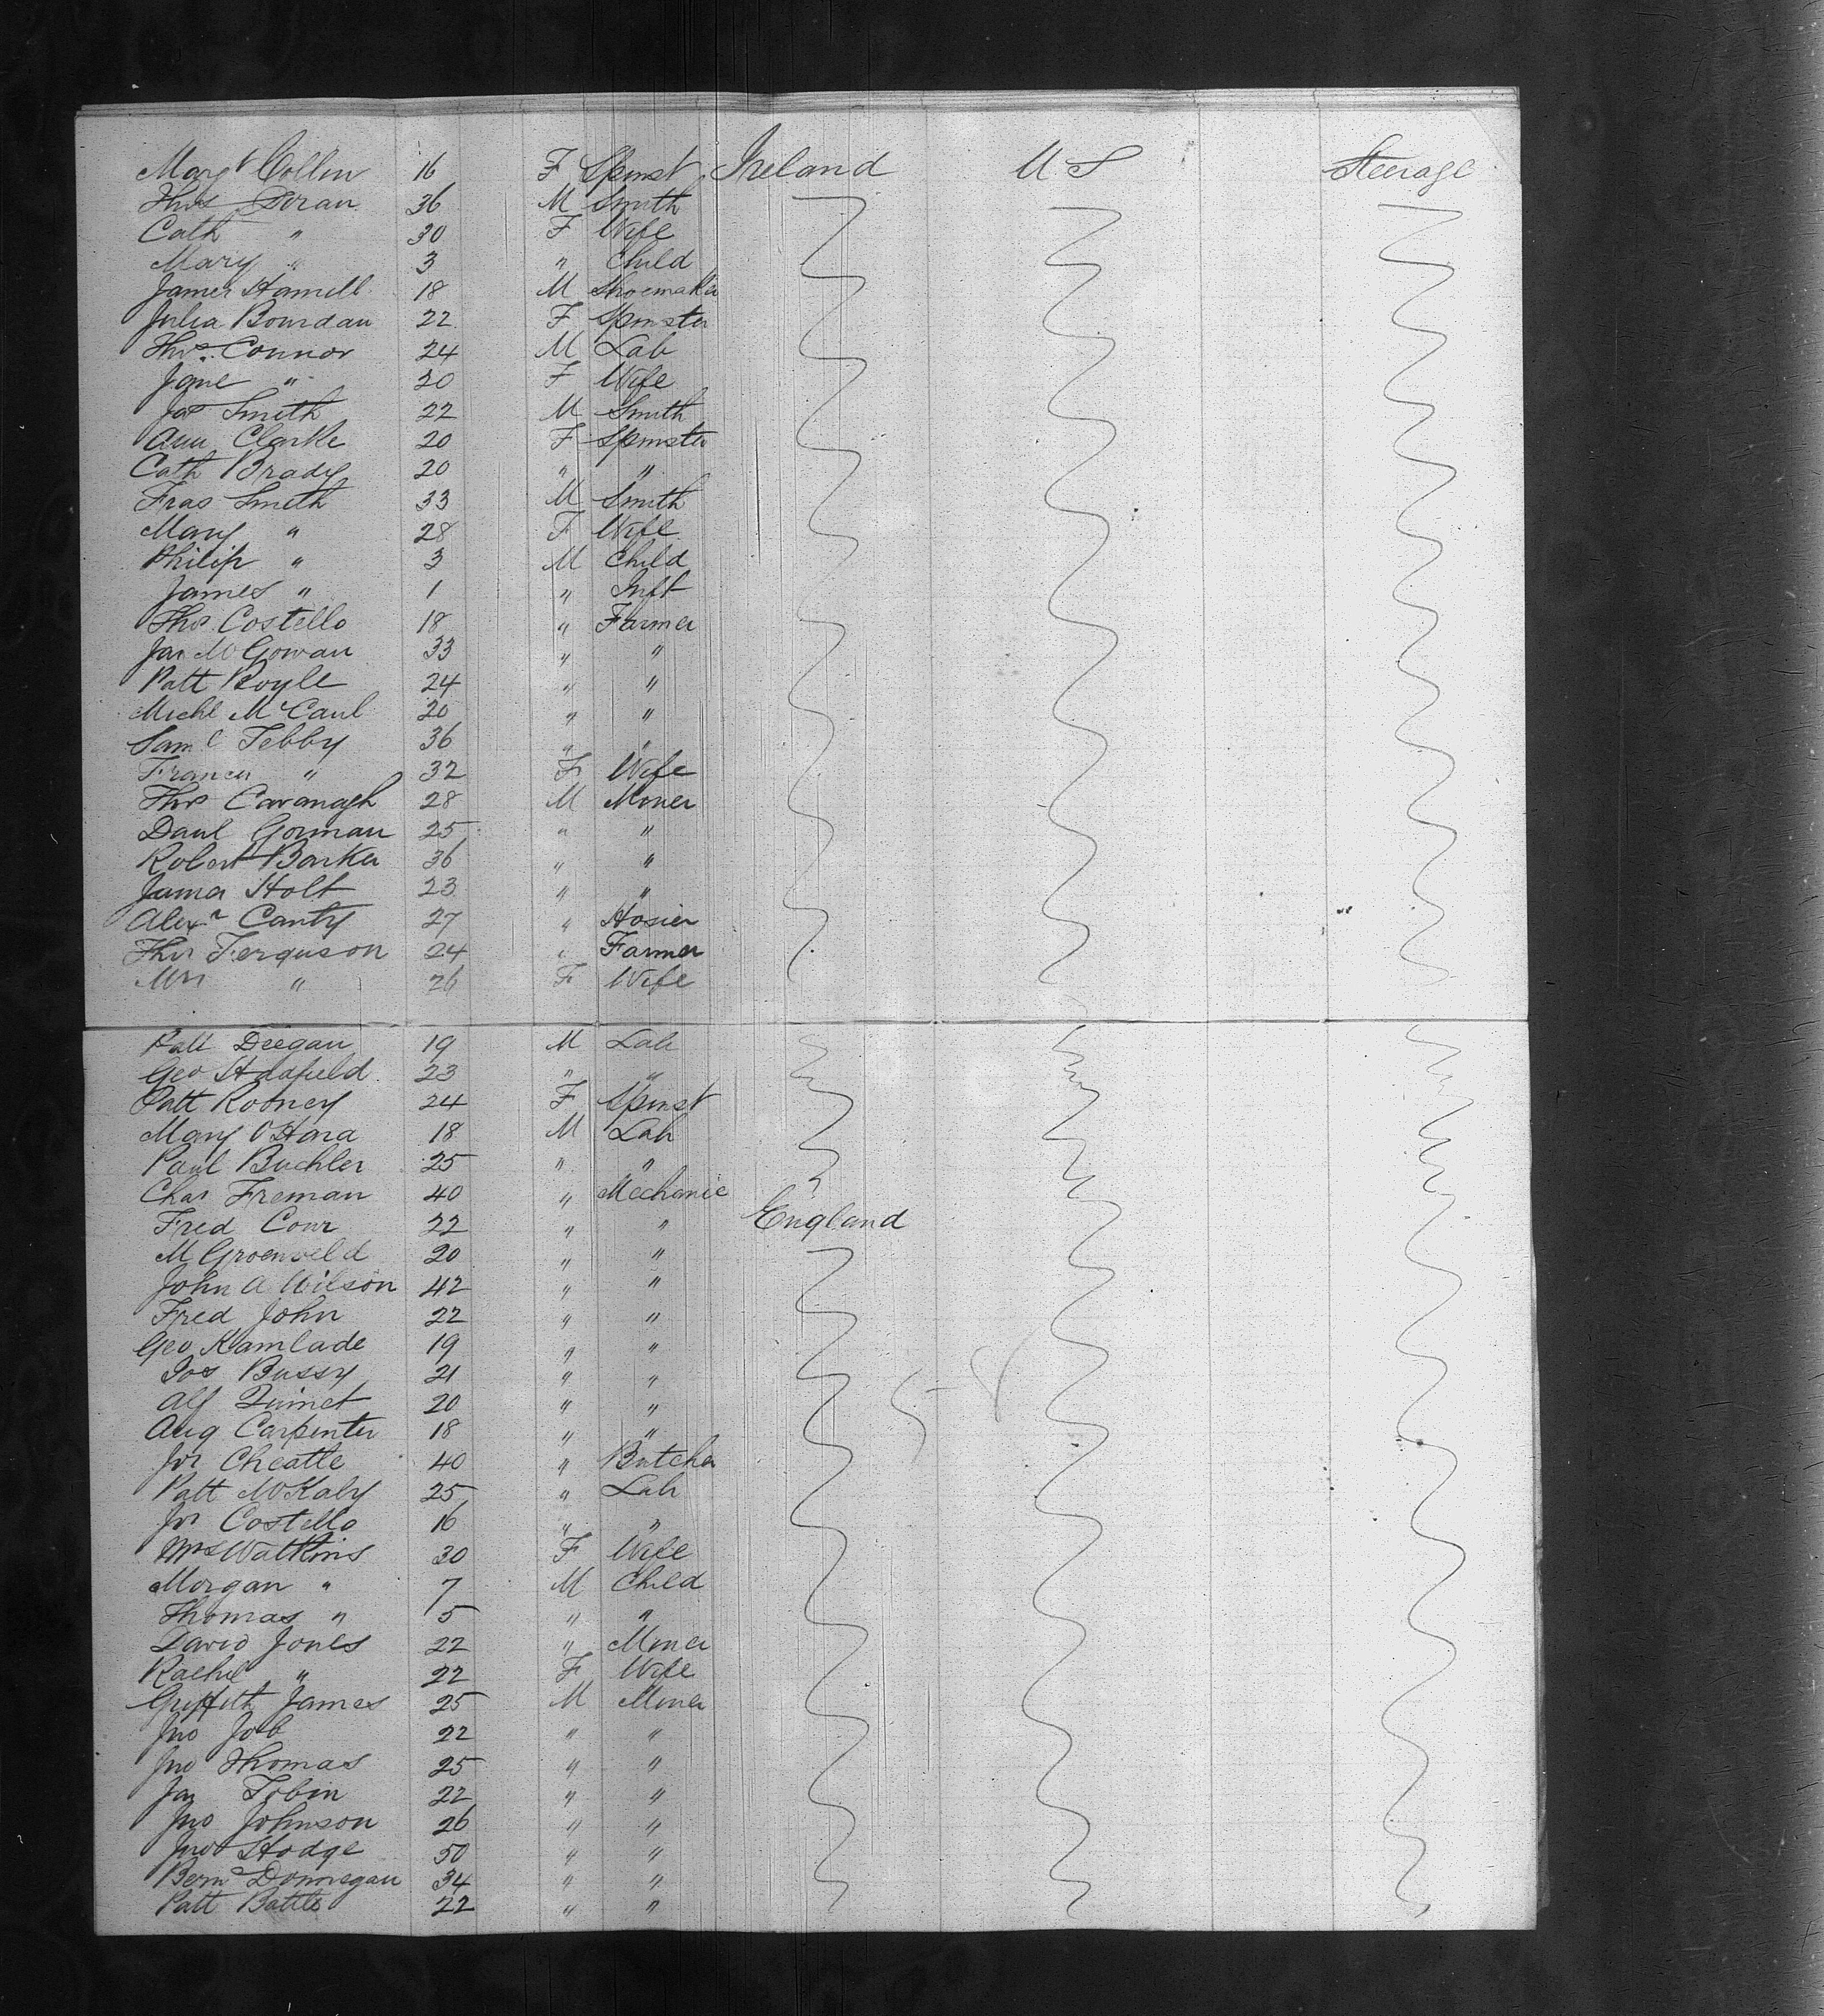 Margt Collin 16 F Spinst Ireland U S Steerage
Thos 36 M Smith
Cath " 30 F Wife
Mary " 3 " Child
James Hamill 18 M Shoemaker
Julia Bourdan 22 F Spinster
Thos. Connor 24 M Lab
Jane " 20 F Wife
Jas Smith 22 M Smith
Ann Clarke 20 F Spinster
Cath Brady 20 " "
Fras Smith 33 M Smith
Mary " 28 F Wife
Philip " 3 M Child
James " 1 " Inft
Thos Costello 18 " Farmer
Jas McGowan 33 " "
Patt Boyle 24 " "
Michl McCaul 20 " "
Saml Tebby 36 " "
Frances " 32 F Wife
Thos Cavanagh 28 M Miner
Danl Gorman 25 " "
Robert Barker 36 " "
James Holt 23 " "
Alexr Canty 27 " Hosier
Thos Ferguson 24 " Farmer
Mrs " 26 F Wife
Patt Deegan 19 M Lab
Geo Hadfield 23 " "
Patt Rooney 24 F Spinst
Mary O'Hara 18 M Lab
Paul Buchler 25 " "
Chas Freman 40 " Mechanic
Fred Cour 22 " " England
M Groenveld 20 " "
John A Wilson 42 " "
Fred John 22 " "
Geo Kamlade 19 " "
Jos Bussy 21 " "
Alf 20 " "
Aug Carpenter 18 " "
Jos Cheatle 40 " Butcher
Patt McKaly 25 " Lab
Jos Costello 16 " "
Mrs Watkins 30 F Wife
Morgan " 7 M Child
Thomas " 5 " "
David Jones 22 " Miner
Rachel " 22 F Wife
Griffith James 25 M Miner
Jno Job 22 " "
Jno Thomas 25 " "
Jas Tobin 22 " "
Jno Johnson 26 " "
Jno Hodge 50 " "
Bernd Donnegan 34 " "
Patt Battle 22 " "